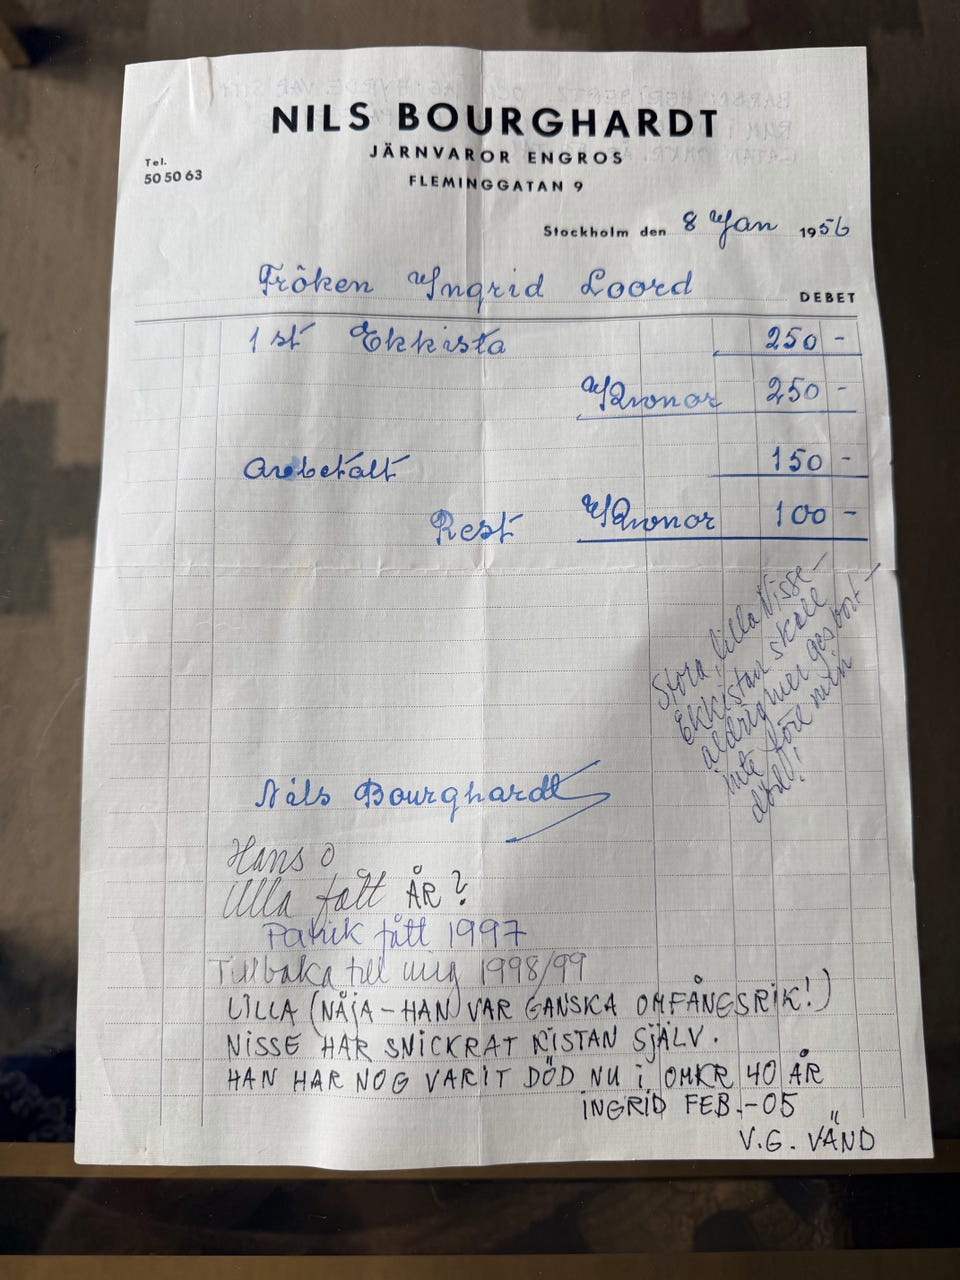 NILS BOURGHARDT
JÄRNVAROR ENGROS
FLEMINGGATAN 9
Tel.
50 50 63
Stockholm den 8 Jan 1956
Fröken Yngrid Loord
DEBET
1 st Ekkista 250 -
Kronor 250 -
Avbetalt 150 -
Rest Kronor 100 -
Stora, lilla Nisse -
Ekkistan skall
aldrig mer ges bort -
inte före min
död!
Nils Bourghardt
Hans o
Ulla fått ÅR?
Patrik fått 1997
Tillbaka till mig 1998/99
LILLA (NÅJA - HAN VAR GANSKA OMFÅNGSRIK!)
NISSE HAR SNICKRAT KISTAN SJÄLV.
HAN HAR NOG VARIT DÖD NU i OMKR 40 ÅR
INGRID FEB.-05
V.G. VÄND